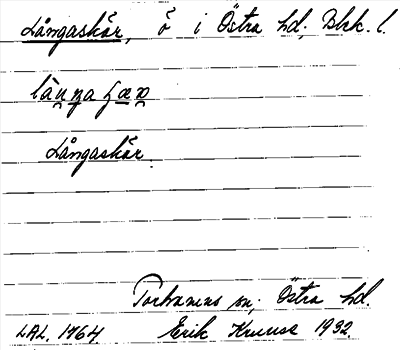 Långaskär, ö i Östra hd; Blek. l.
Långaskär.
Torhamns sn; Östra hd.
LAL. 1764 Erik Kruuse 1932